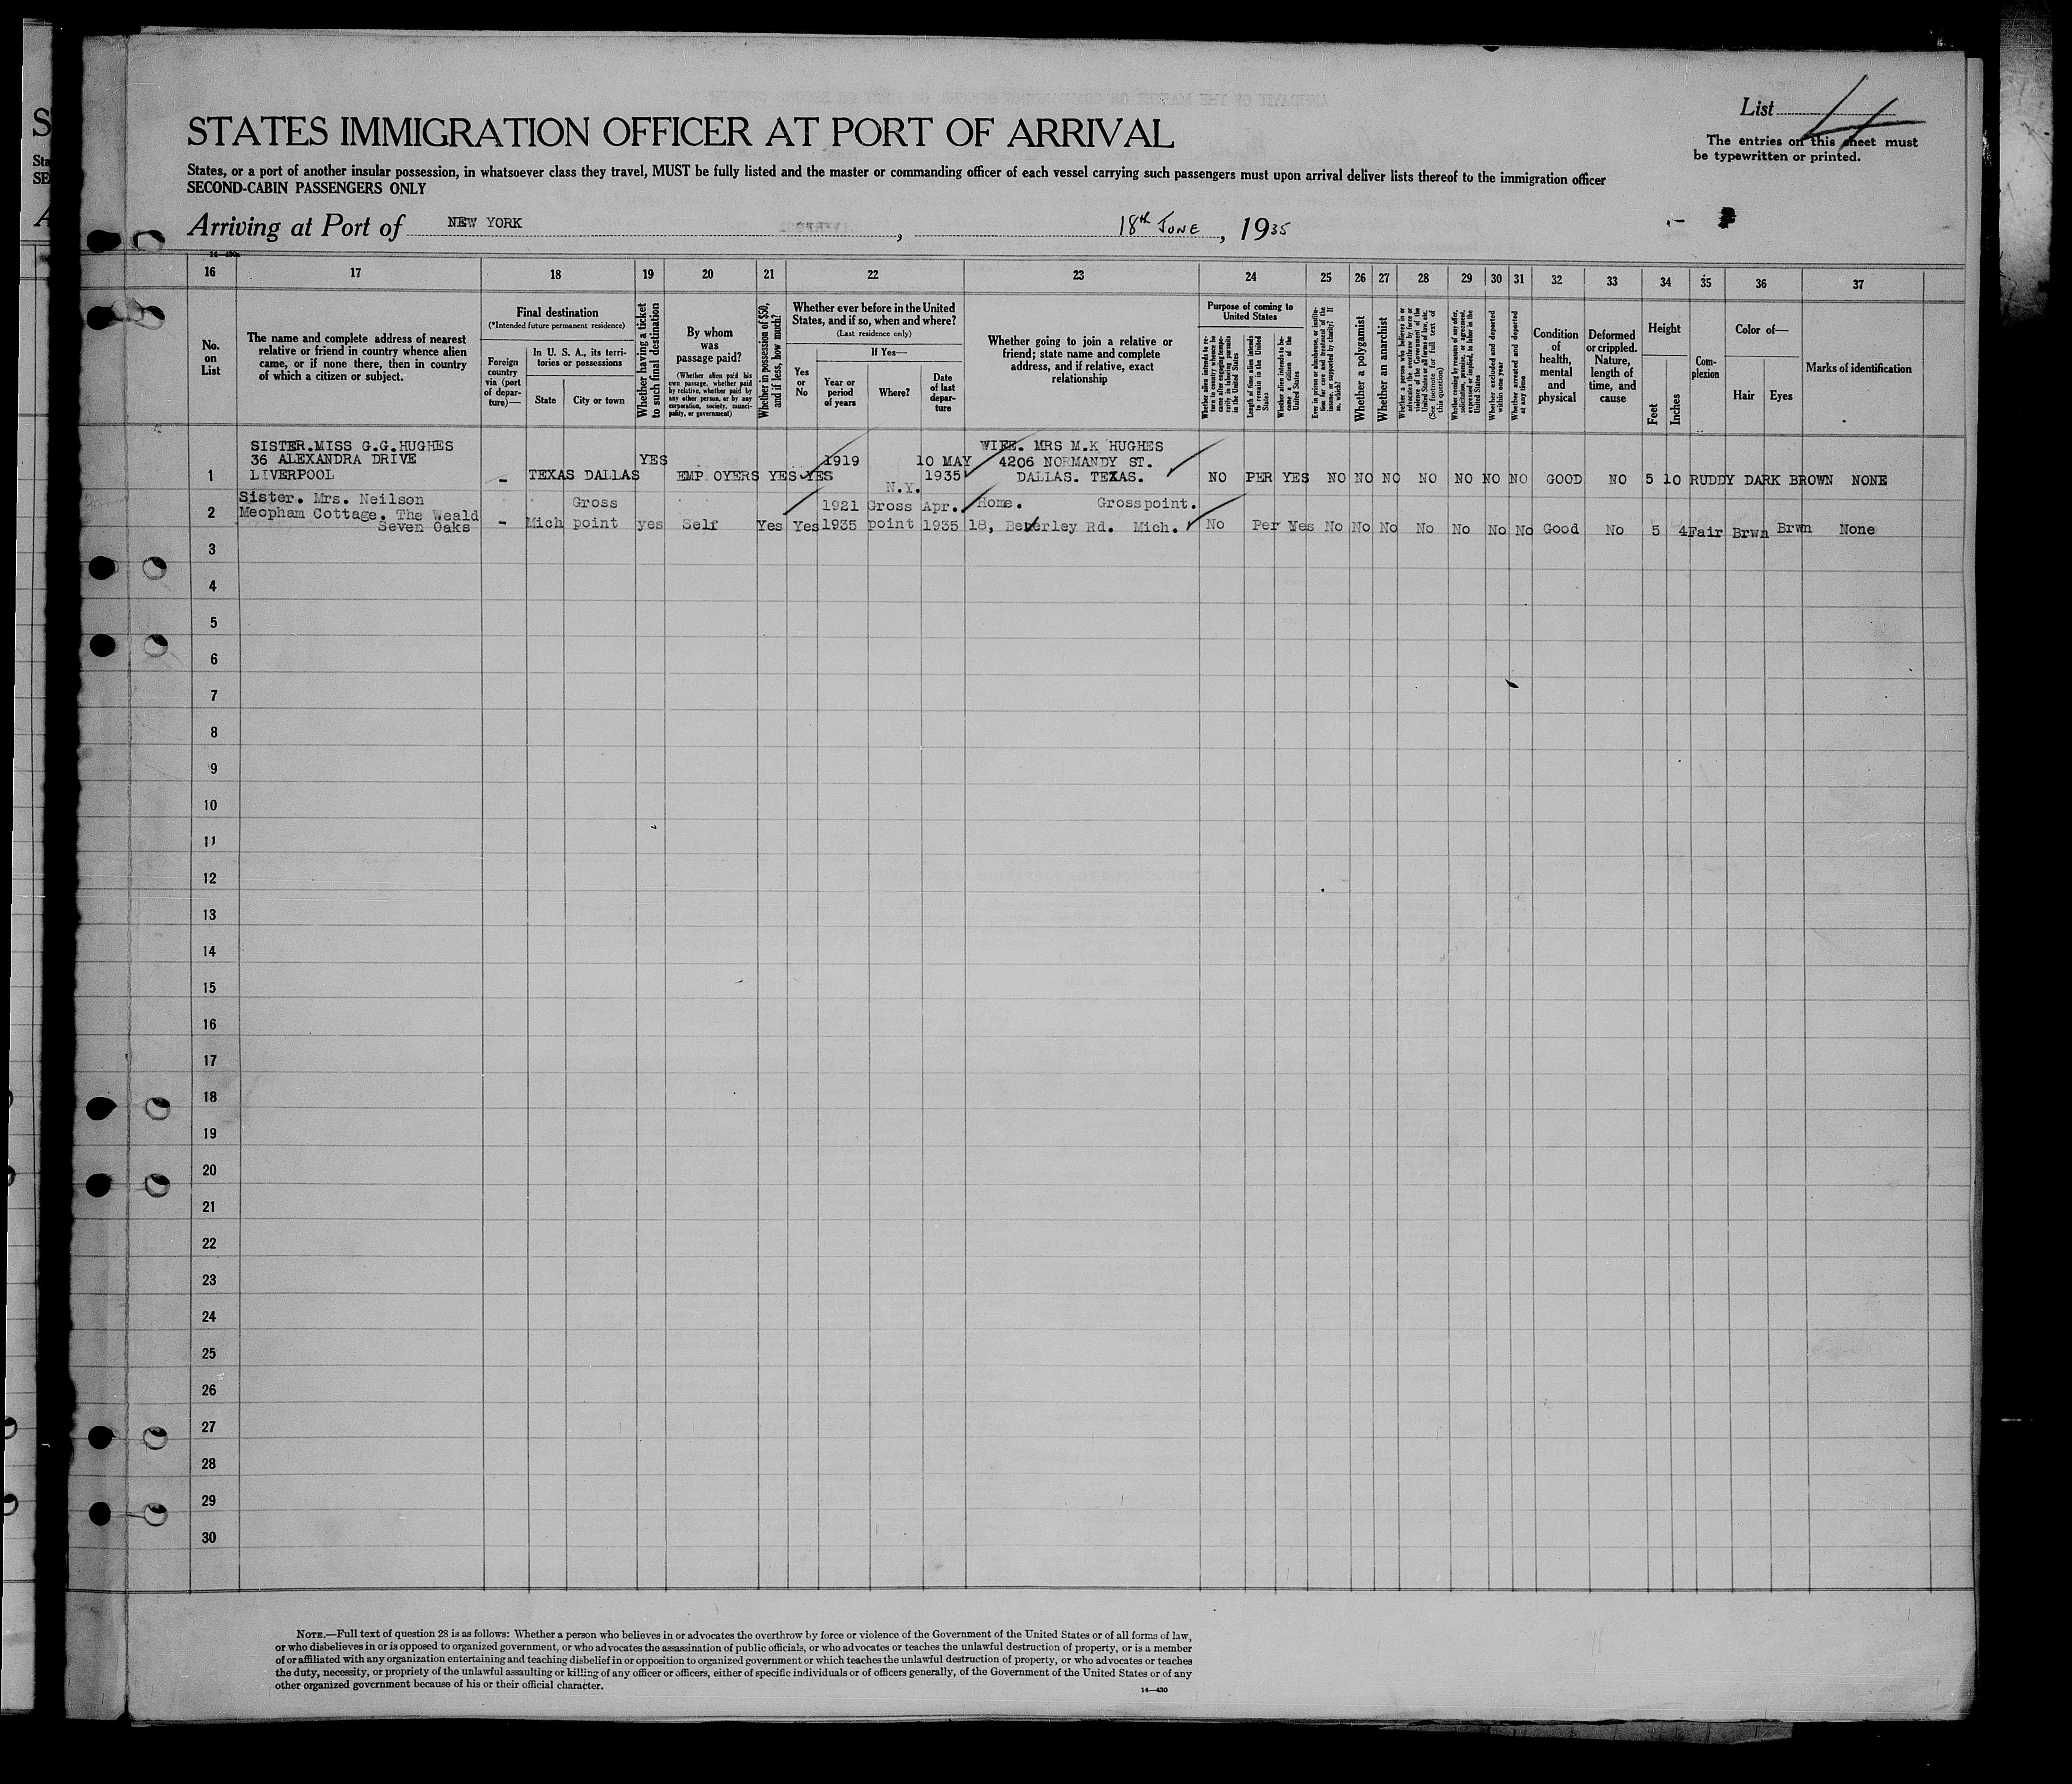 List 4
The entries on this sheet must
be typewritten or printed.
STATES IMMIGRATION OFFICER AT PORT OF ARRIVAL
States, or a port of another insular possession, in whatsoever class they travel, MUST be fully listed and the master or commanding officer of each vessel carrying such passengers must upon arrival deliver lists thereof to the immigration officer
SECOND-CABIN PASSENGERS ONLY
Arriving at Port of NEW YORK, 18th JUNE, 1935
16 17 18 19 20 21 22 23 24 25 26 27 28 29 30 31 32 33 34 35 36 37
No.
on
List
The name and complete address of nearest
relative or friend in country whence alien
came, or if none there, then in country
of which a citizen or subject.
Final destination
(*Intended future permanent residence)
Foreign
country
via (port
of depar-
ture)—
In U. S. A., its terri-
tories or possessions
State
City or town
Whether having a ticket
to such final destination
By whom
was
passage paid?
(Whether alien paid his
own passage, whether paid
by relative, whether paid by
any other person, or by any
corporation, society, munici-
pality, or government)
Whether in possession of $50,
and if less, how much?
Whether ever before in the United
States, and if so, when and where?
(Last residence only)
Yes
or
No
If Yes—
Year or
period
of years
Where?
Date
of last
depar-
ture
Whether going to join a relative or
friend; state name and complete
address, and if relative, exact
relationship
Purpose of coming to
United States
Whether alien intends to re-
turn to country whence he
came after engaging tempo-
rarily in laboring pursuits
in the United States
Length of time alien intends
to remain in the United
States
Whether alien intends to be-
come a citizen of the
United States
Ever in prison or almshouse, or institu-
tion for care and treatment of the
insane, or supported by charity? If
so, which?
Whether a polygamist
Whether an anarchist
Whether a person who believes in or
advocates the overthrow by force or
violence of the Government of the
United States or all forms of law, etc.
(See footnote for full text of
this question)
Whether coming by reasons of any offer,
solicitation, promise, or agreement,
expressed or implied, to labor in the
United States
Whether excluded and deported
within one year
Whether arrested and deported
at any time
Condition
of
health,
mental
and
physical
Deformed
or crippled.
Nature,
length of
time, and
cause
Height
Feet
Inches
Com-
plexion
Color of—
Hair
Eyes
Marks of identification
SISTER.MISS G.G.HUGHES
36 ALEXANDRA DRIVE
LIVERPOOL
1 - TEXAS DALLAS YES EMP OYERS YES YES 1919 N.Y. 10 MAY 1935
WIFE. MRS M.K HUGHES
4206 NORMANDY ST.
DALLAS. TEXAS.
NO PER YES NO NO NO NO NO NO NO GOOD NO 5 10 RUDDY DARK BROWN NONE
Sister. Mrs. Neilson
Meopham Cottage. The Weald
Seven Oaks
2 - Mich Gross point yes Self Yes Yes 1921 1935 Gross point Apr. 1935
Home. Grosspoint.
18, Beverley Rd. Mich.
No Per Yes No No No No No No No Good No 5 4 Fair Brwn Brwn None
3
4
5
6
7
8
9
10
11
12
13
14
15
16
17
18
19
20
21
22
23
24
25
26
27
28
29
30
NOTE.—Full text of question 28 is as follows: Whether a person who believes in or advocates the overthrow by force or violence of the Government of the United States or of all forms of law,
or who disbelieves in or is opposed to organized government, or who advocates the assassination of public officials, or who advocates or teaches the unlawful destruction of property, or is a member
of or affiliated with any organization entertaining and teaching disbelief in or opposition to organized government or which teaches the unlawful destruction of property, or who advocates or teaches
the duty, necessity, or propriety of the unlawful assaulting or killing of any officer or officers, either of specific individuals or of officers generally, of the Government of the United States or of any
other organized government because of his or their official character.
14—430